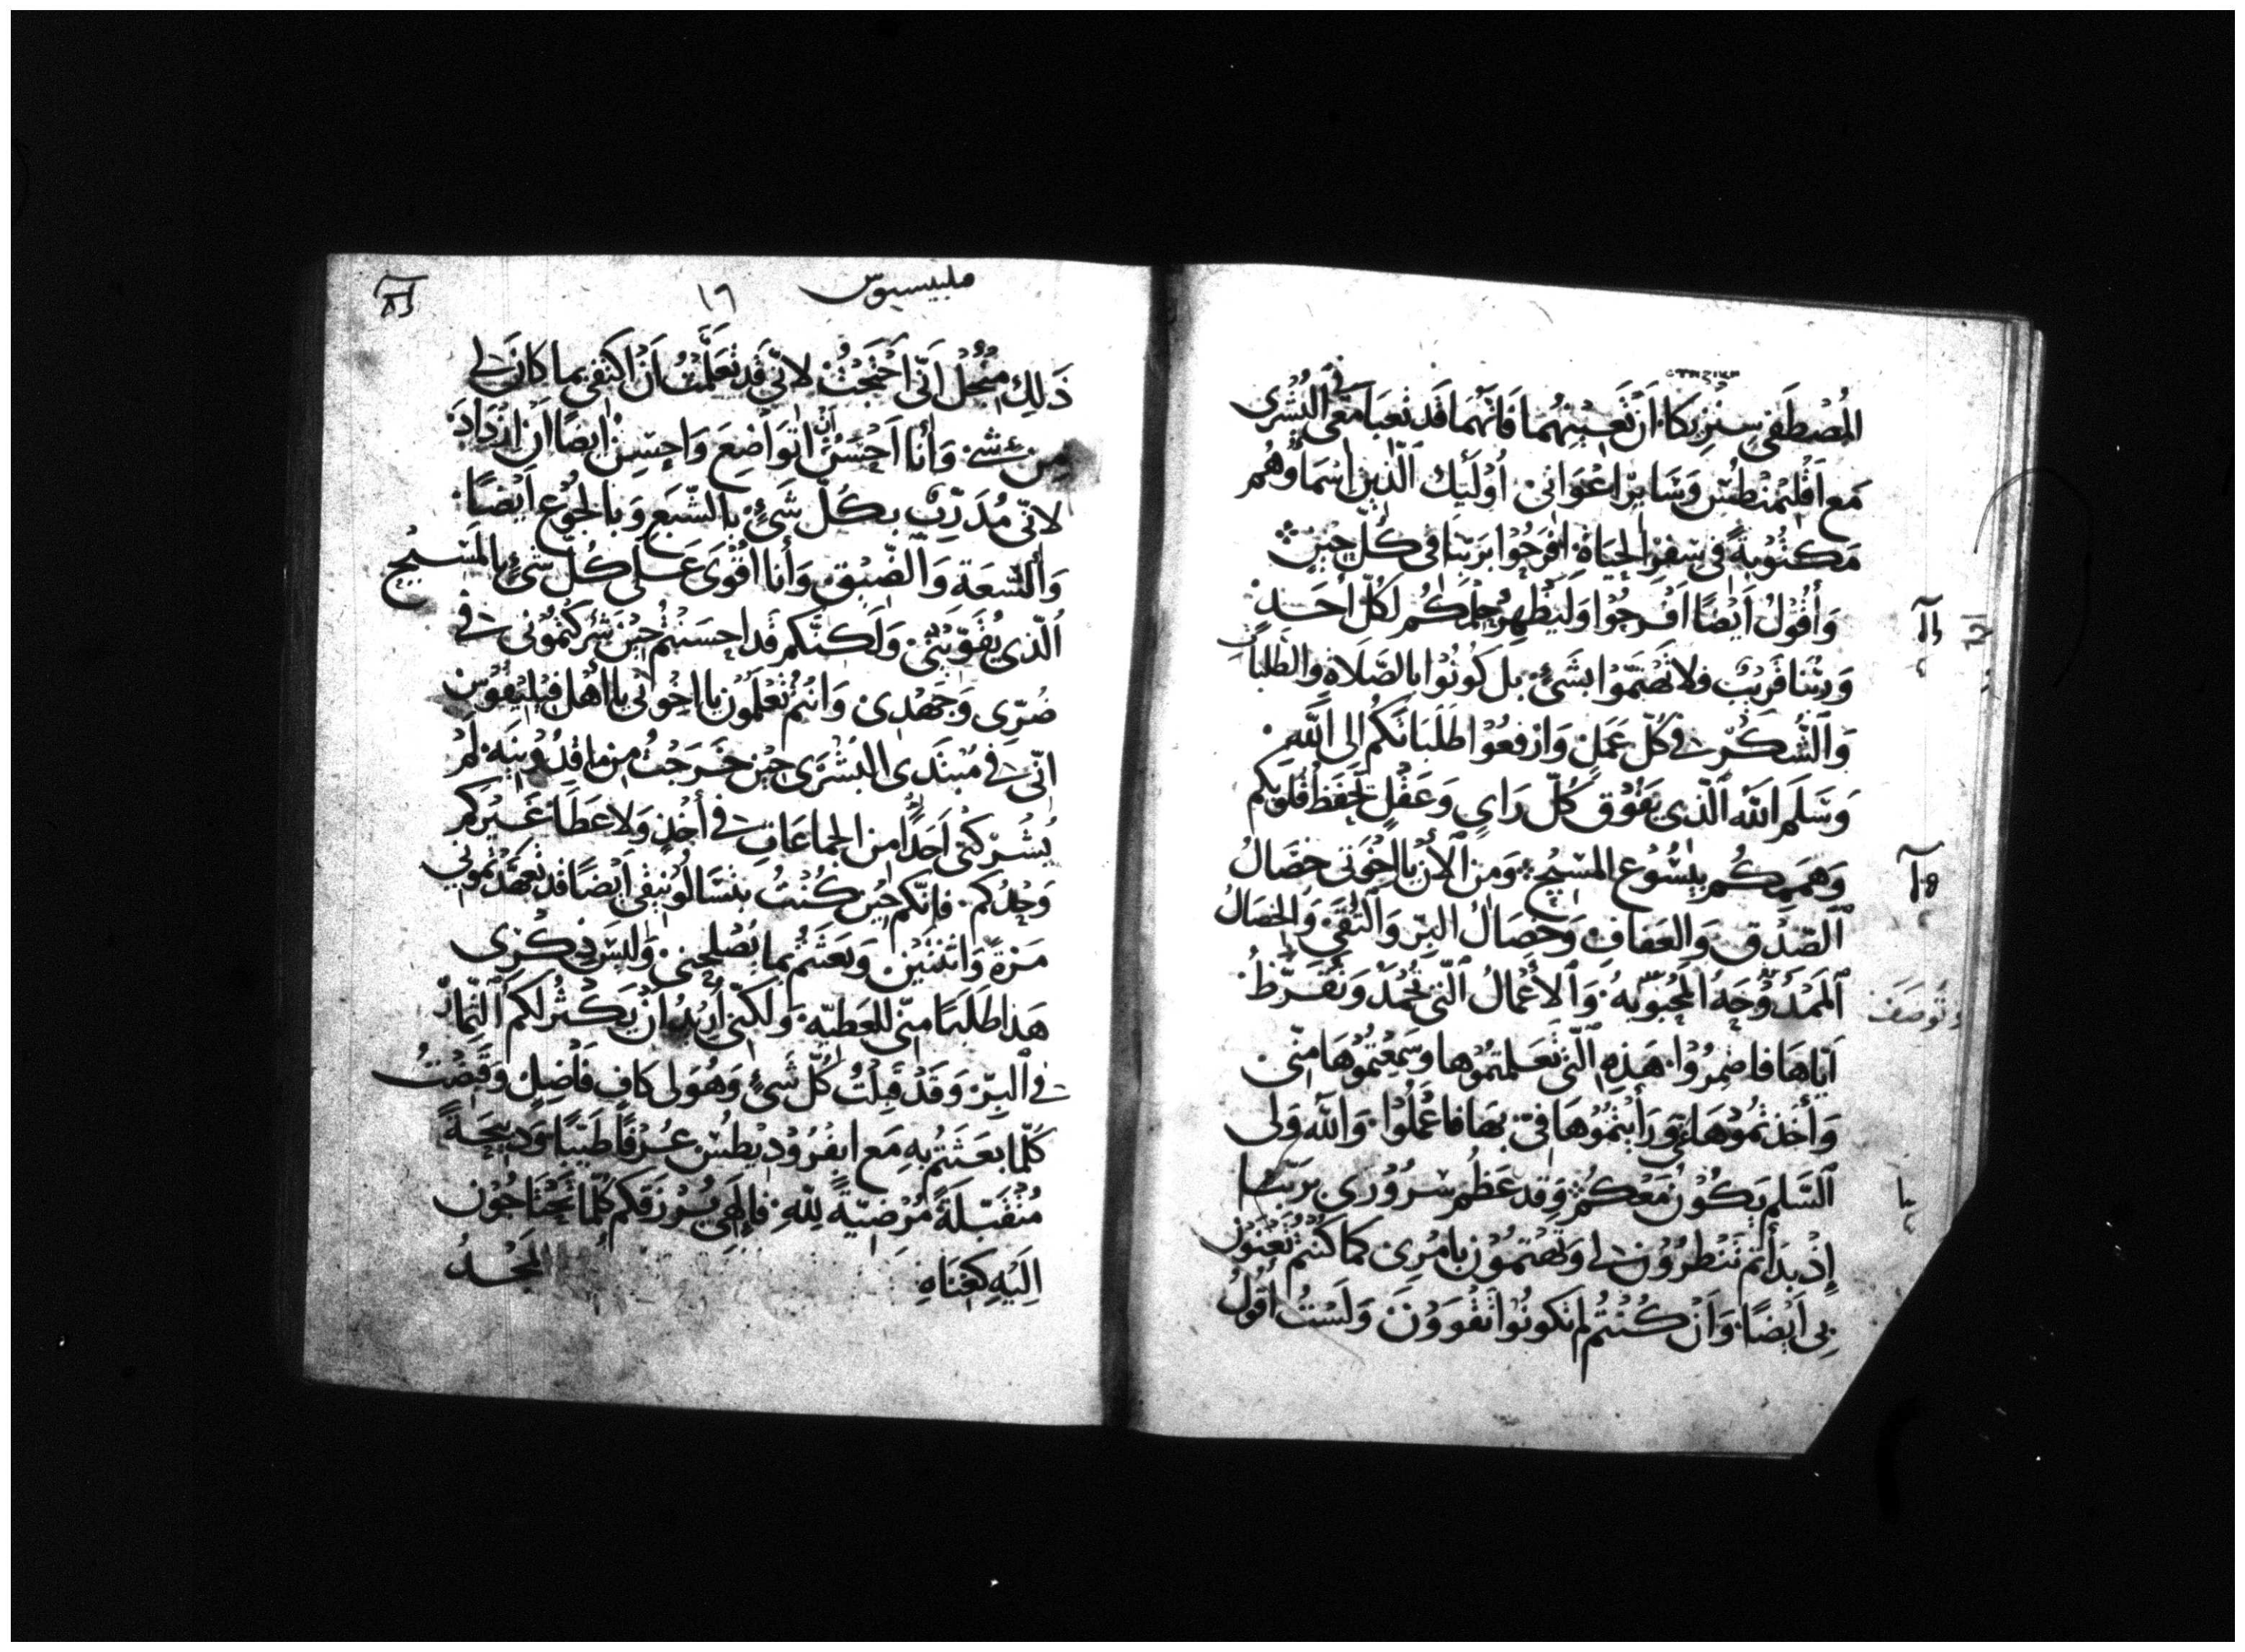 المُصْطَفَى سِنْزِيكَا، أَنْ تُعِيْنَهُمَا فَإِنَّهُمَا قَد تَعِبَا مَعِي فِي البُشْرَى
مَعَ اقْلِيْمَنْطُسْ وَسَايِرِ اعْوَانِىْ أُوْلَيِٕكَ الَّذِينَ اسْمَاؤُهُم
مَكْتُوْبَةٌ فى سِفْرِ الحَيَاةِ افْرَحُوْا بِرَبّنَا فى كُلّ حِيْنٍ
وَأَقُوْلُ أَيْضًا افْرَحُوْا وَلْيَظْهِرْ حِلْمُكُم لِكُلّ أَحَدٍ
وَرَبّنَا قَرِيْبٌ فلا تَهْتَمّوا بِشَىْءٍ بل كُونُوْا بِالصَّلاةِ وَالطَّلِبَاتِ
وَالشُّكْرِ فِي كُلّ عَمَلٍ وَارْفَعُوْا طَلِبَاتِكُم الى اللَّهِ
وَسَلَم اللَّهِ الّذِى يَفُوْقُ كُلّ رَايٍ وَعَقْلٍ يَحْفَظُ قُلُوبَكُم
وَهِمَمِكُم بِيْسُوْعَ المَسِيْحِ وَمِنَ الآنَ يا اخْوَتِى خِصَالُ
الصِّدْقِ وَالعَفَافِ وَخِصَالُ البِرِّ وَالتُّقَى وَالخِصَالُ
المَمْدُوْحَهُ المَحْبُوبَهُ وَالأَعْمَالُ الَّتى تُحْمَدُ وَتُقَرّظُ
وَتُوصَفُ
ايّاهَا فاضْمِرُوْا هَذِهِ الَّتِي تَعَلّمْتُمُوْهَا وسَمِعْتُمُوْهَا مِنّى
وَأَخَذْتُمُوْهَا عَنِّي وَرَأَيْتُمُوْهَا فِيّ بِهَا فَاعْمَلُوْا وَاللَّهُ وَلى
السَّلَمِ يَكُوْنُ مَعَكُمْ وَقَد عَظُمَ سُرُوْرِى بِرَبّنَا
إِذْ بَدَأْتُم تَنْظُرُوْنَ لِي وَتَهْتَمّوْنَ بِامْرِى كَمَا كُنْتُمْ تُعْنَوْنَ
بِى أَيْضًا وَأَنْ كُنْتُمْ لَم تَكُونُوْا تَقْوَوْنَ وَلَسْتُ أَقُوْلُ
١٦
ذَلِكَ مِنْ أَجْلِ أَنّى احْتَجْتُ لانّى قَد تَعَلَّمْتُ أَنْ اكْتَفِى بِما كانَ لِي
مِن شَىْءٍ وَأنا أُحْسِنُ أَنْ اتَوَاضَعَ وَاحْسِنُ ايْضًا ان ازْدَادَ
لانّى مُدَرَّبٌ بِكُلّ شَىْءٍ بِالشّبَعِ وَبِالجُوْعِ أَيْضًا
وَالسَّعَةِ وَالضّيْقِ وَأنا أَقْوَى عَلى كُلّ شَىْءٍ بِالمَسِيْحِ
الّذى يُقَوّيْنِى وَلَكِنّكُم قَد احْسَنْتُم حِيْنَ شَرَكْتُمُونِى فِي
ضُرّى وَجَهْدِى وَانْتُم تَعْلَمُوْنَ يا اخْوَتِى يا أَهْلَ فِيْلِيْفُوسَ
انّى فِي مُبْتَدَى البُشْرَى حِيْنَ خَرَجْتُ مِن ماقِدُوْنِيَه لَمْ
يُشْرِكْنى أَحَدًا مِنَ الجماعَاتِ فِي أَخْذٍ وَلا عَطَاءٍ غَيْرُكُم
وَحْدَكُم فَإِنّكُم حِيْنَ كُنْتُ بِتَسَالُونِيْقِى أَيْضًا قَد تَعَهّدْتُمُونِي
مَرّةً وَاثْنَتَيْنِ وَبَعَثْتُم بما يُصْلِحُنِى وَلَيْسَ ذِكْرِى
هَذَا طَلَبًا مِنّى للعَطِيّه وَلَكِنّى أُرِيْدُ أَنْ يَكْثُرَ لَكُم الثّمَارُ
فِي البِرّ وَقَدْ قَبِلْتُ كُلّ شَىْءٍ وَهُوَ لى كافٍ فَاضِلٌ وَقَبَضْتُ
كُلّما بَعَثْتُم بِهِ مَعَ ابَفْرُوْدِيْطُسْ عَرْفًا طَيّبًا وَذَبِيْحَةً
مُتَقَبّلَةً مُرْضِيّةً لِلّهِ فَإِلَهِى يَرْزُقُكُم كُلّما تَحْتَاجُوْنَ
الَيْهِ كَغِنَاهِ المَجْدُ